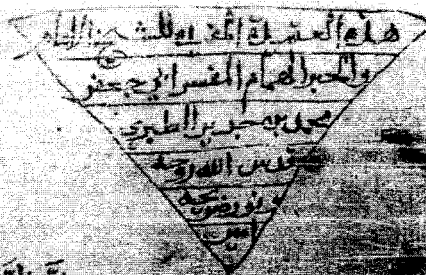 هذه العقيدة المفيدة للشيخ الإمام
والحبر الهمام المفسر ابي جعفر
محمد بن جرير الطبري
قدس الله روحه
ونور ضريحه
امين